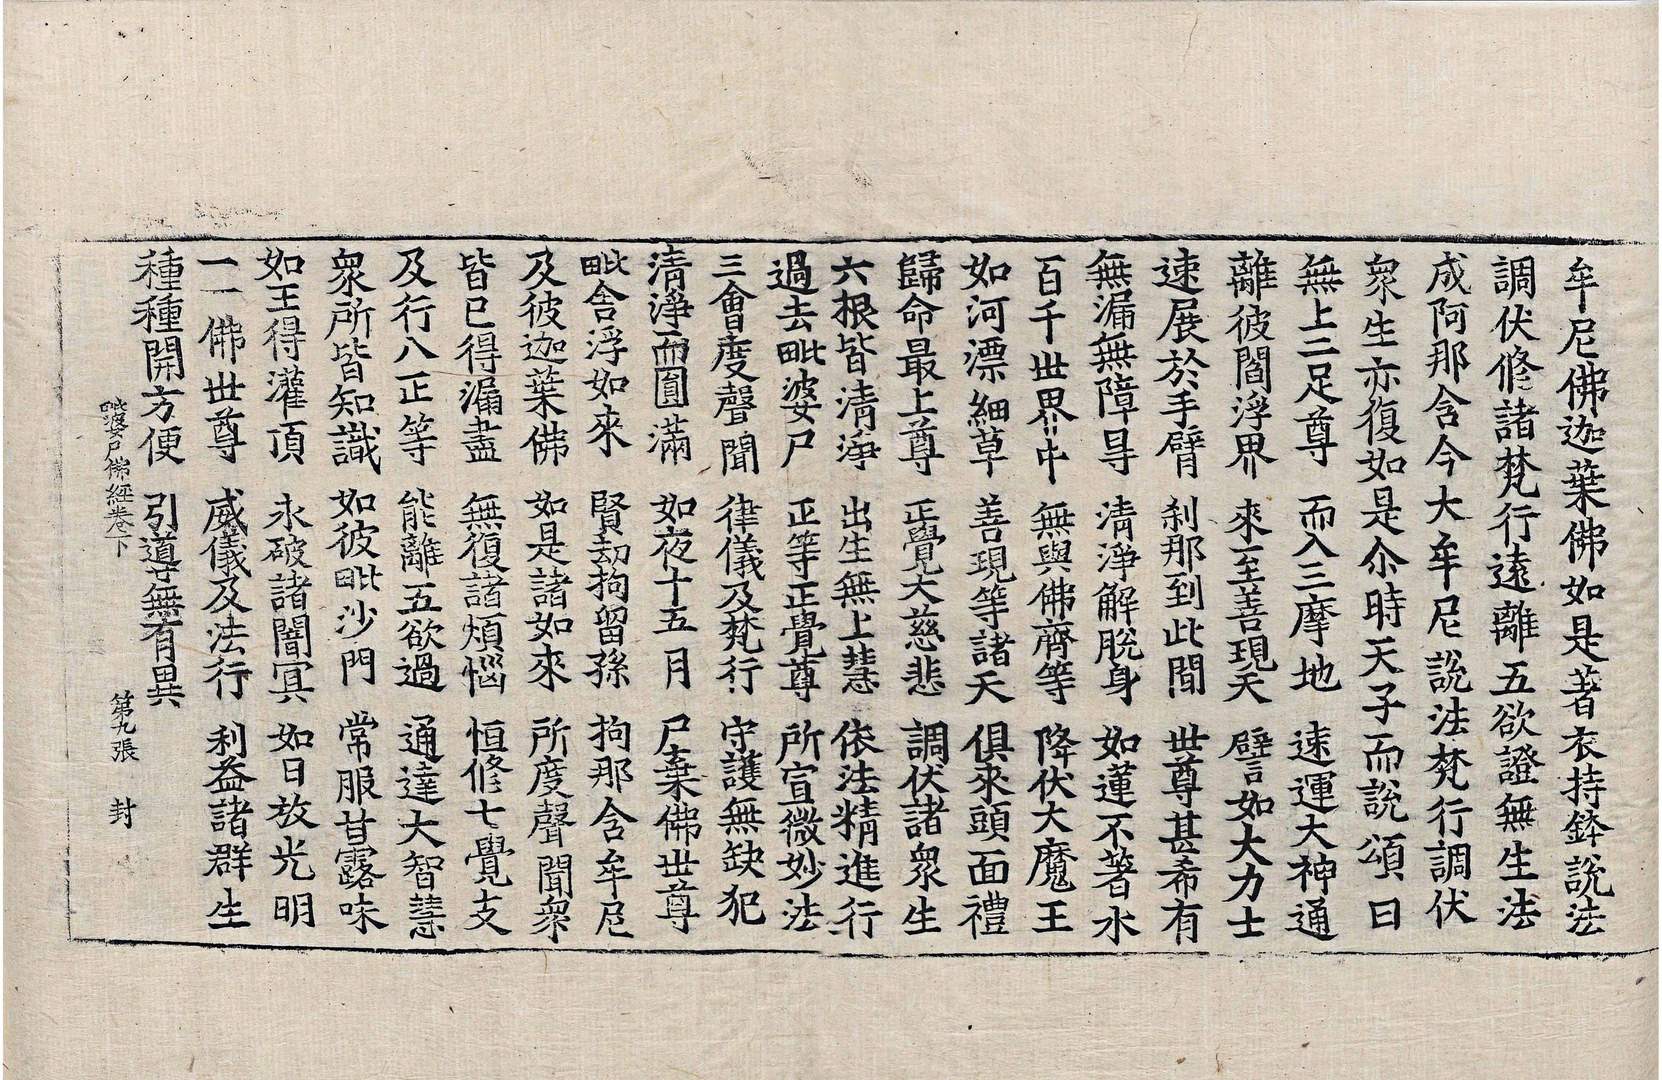 牟尼佛迦葉佛如是著衣持鉢說法
調伏修諸梵行遠離五欲證無生法
成阿那含今大牟尼說法梵行調伏
衆生亦復如是尒時天子而說頌曰
無上二足尊　而入三摩地　速運大神通
離彼閻浮界　來至善現天　譬如大力士
速展於手臂　剎那到此間　世尊甚希有
無漏無障㝵　清淨解脫身　如蓮不著水
百千世界中　無與佛齊等　降伏大魔王
如河漂細草　善現等諸天　俱來頭面禮
歸命最上尊　正覺大慈悲　調伏諸衆生
六根皆清淨　出生無上慧　依法精進行
過去毗婆尸　正等正覺尊　所宣微妙法
三會度聲聞　律儀及梵行　守護無缺犯
清淨而圓滿　如夜十五月　尸棄佛世尊
毗舍浮如來　賢劫拘留孫　拘那含牟尼
及彼迦葉佛　如是諸如來　所度聲聞衆
皆已得漏盡　無復諸煩惱　恒修七覺支
及行八正等　能離五欲過　通達大智慧
衆所皆知識　如彼毗沙門　常服甘露味
如王得灌頂　永破諸闇冥　如日放光明
一一佛世尊　威儀及法行　利益諸群生
種種開方便　引導無有異
毗婆尸佛經卷下　第九張　封